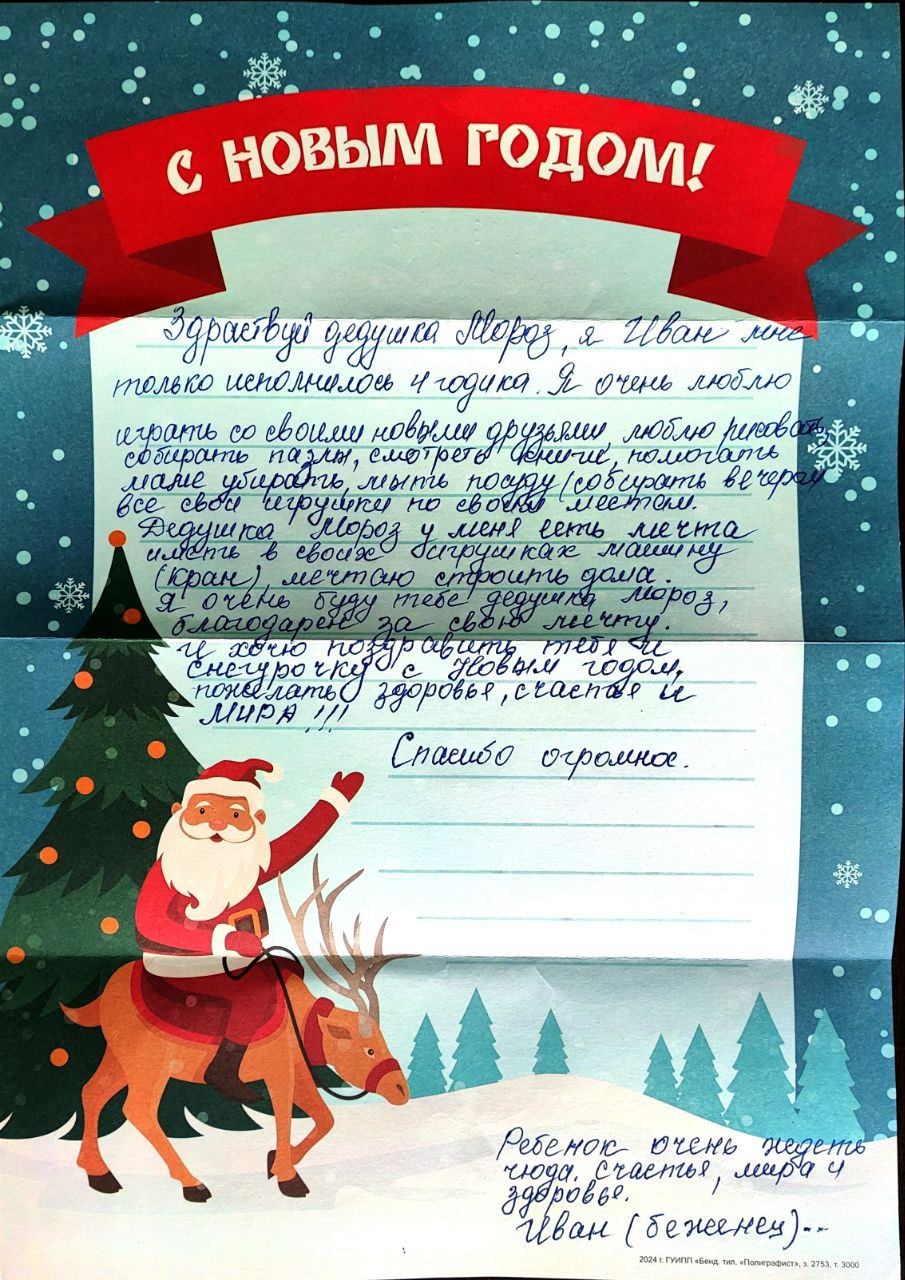 С НОВЫМ ГОДОМ!
Здраствуй дедушка Мороз, я Иван мне
только исполнилось 4 годика. Я очень люблю
играть со своими новыми друзьями, люблю рисовать
собирать пазлы, смотреть книги, помогать
маме убирать, мыть посуду (собирать вечером
все свои игрушки по своим местам.
Дедушка Мороз у меня есть мечта
иметь в своих игрушках машину
(кран), мечтаю строить дома.
Я очень буду тебе дедушка Мороз,
благодарен за свою мечту.
И хочю поздравить тебя и
снегурочку с Новым годом,
пожелать здоровье, счастье и
МИРА!!!
Спасибо огромное.
Ребенок очень ждеть
чюда. счастья, мира и
здоровье.
Иван (беженец)...
2024 г. ГУИПП «Бенд. тип. «Полиграфист», з. 2753, т. 3000